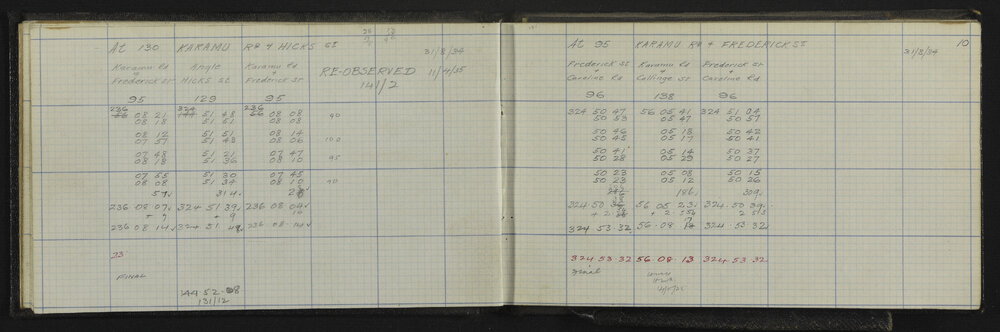 At 130 KARAMU RD + HICKS ST
31/8/34
Karamu Rd Angle Karamu Rd
+ +
Frederick St HICKS St Frederick St
RE-OBSERVED 11/4/35
141/2
95 129 95
236 324 236
56 08 21 144 51 48 56 08 08 90
08 18 51 51 08 08
08 12 51 51 08 14
07 57 51 48 08 06 100
07 48 51 21 07 47
08 18 51 36 08 10 95
07 55 51 30 07 45
08 08 51 34 08 10 90
57 314
236 08 07 324 51 39 236 08 04
+ 7 + 9 10
236 08 14 324 51 48 236 08 14
23
FINAL
144.52.08
131/12
At 95 KARAMU Rd + FREDERICK ST
31/8/34 10
Frederick St Karamu Rd Frederick St
+ + +
Caroline Rd Collinge St Caroline Rd
96 138 96
324 50 47 56 05 41 324 51 04
50 53 05 47 50 57
50 46 05 18 50 42
50 45 05 17 50 41
50 41 05 14 50 37
50 28 05 29 50 27
50 23 05 08 50 15
50 23 05 12 50 26
186 309
324 50 56 05 23 324 50 39
+ 2 + 2 2 53
324 53 32 56 08 324 53 32
324 53 32 56.08.13 324 53 32
Final